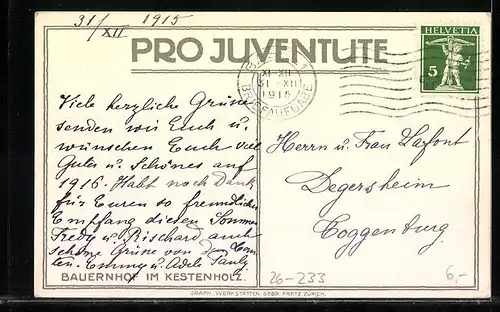 31/XII 1915
PRO JUVENTUTE
HELVETIA
5
XI-XII
31 XII
1915
BRIEFAUFGABE
Viele herzliche Grüsse
senden wir Euch u.
wünschen Euch viel
Gutes u. Schönes auf
1916. Habt noch Dank
für Euren so freundlichen
Empfang diesen Sommer
Fredy u. Rischard auch
schöne Grüsse von
Emmy u. Adele
Herrn u. Frau Larfont
Degersheim
Toggenburg
BAUERNHOF IM KESTENHOLZ.
26-233
6,-
GRAPH. WERKSTÄTTEN GEBR. FRETZ ZÜRICH.